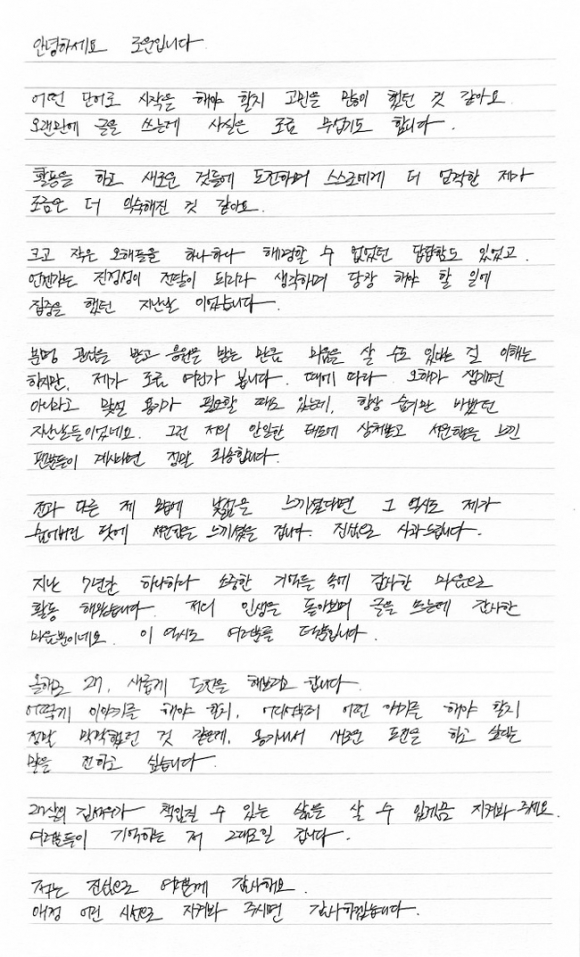 안녕하세요 로운입니다.
어떤 단어로 시작을 해야 할지 고민을 많이 했던 것 같아요.
오랜만에 글을 쓰는게 사실은 조금 무섭기도 합니다.
활동을 하고 새로운 것들에 도전하며 스스로에게 더 엄격한 제가
조금은 더 익숙해진 것 같아요.
크고 작은 오해들을 하나하나 해명할 수 없었던 답답함도 있었고.
언젠가는 진정성이 전달이 되리라 생각하며 당장 해야 할 일에
집중을 했던 지난날 이었습니다.
분명 관심을 받고 응원을 받는 만큼 미움을 살 수도 있다는 걸 이해는
하지만, 제가 조금 여린가 봅니다. 때에 따라 오해가 생기면
아니라고 맞설 용기가 필요할 때도 있는데, 항상 숨기만 바빴던
지난날들이었네요. 그런 저의 안일한 태도에 상처받고 서운함을 느낀
팬분들이 계시다면 정말 죄송합니다.
전과 다른 제 모습에 낯섦을 느끼셨다면 그 역시도 제가
숨어버린 탓에 서운함을 느끼셨을 겁니다. 진심으로 사과드립니다.
지난 7년간 하나하나 소중한 기억들 속에 감사한 마음으로
활동 해왔습니다. 저의 인생을 돌아보며 글을 쓰는데 감사한
마음뿐이네요. 이 역시도 여러분들 덕분입니다.
올해로 27, 새롭게 도전을 해보려고 합니다.
어떻게 이야기를 해야 할지, 어디서부터 어떤 얘기를 해야 할지
정말 막막했던 것 같은데, 용기내서 새로운 도전을 하고 싶다는
말을 전하고 싶습니다.
27살의 김석우가 책임질 수 있는 삶을 살 수 있게끔 지켜봐 주세요.
여러분들이 기억하는 저 그대로일 겁니다.
저는 진심으로 여러분께 감사해요.
애정 어린 시선으로 지켜봐 주시면 감사하겠습니다.